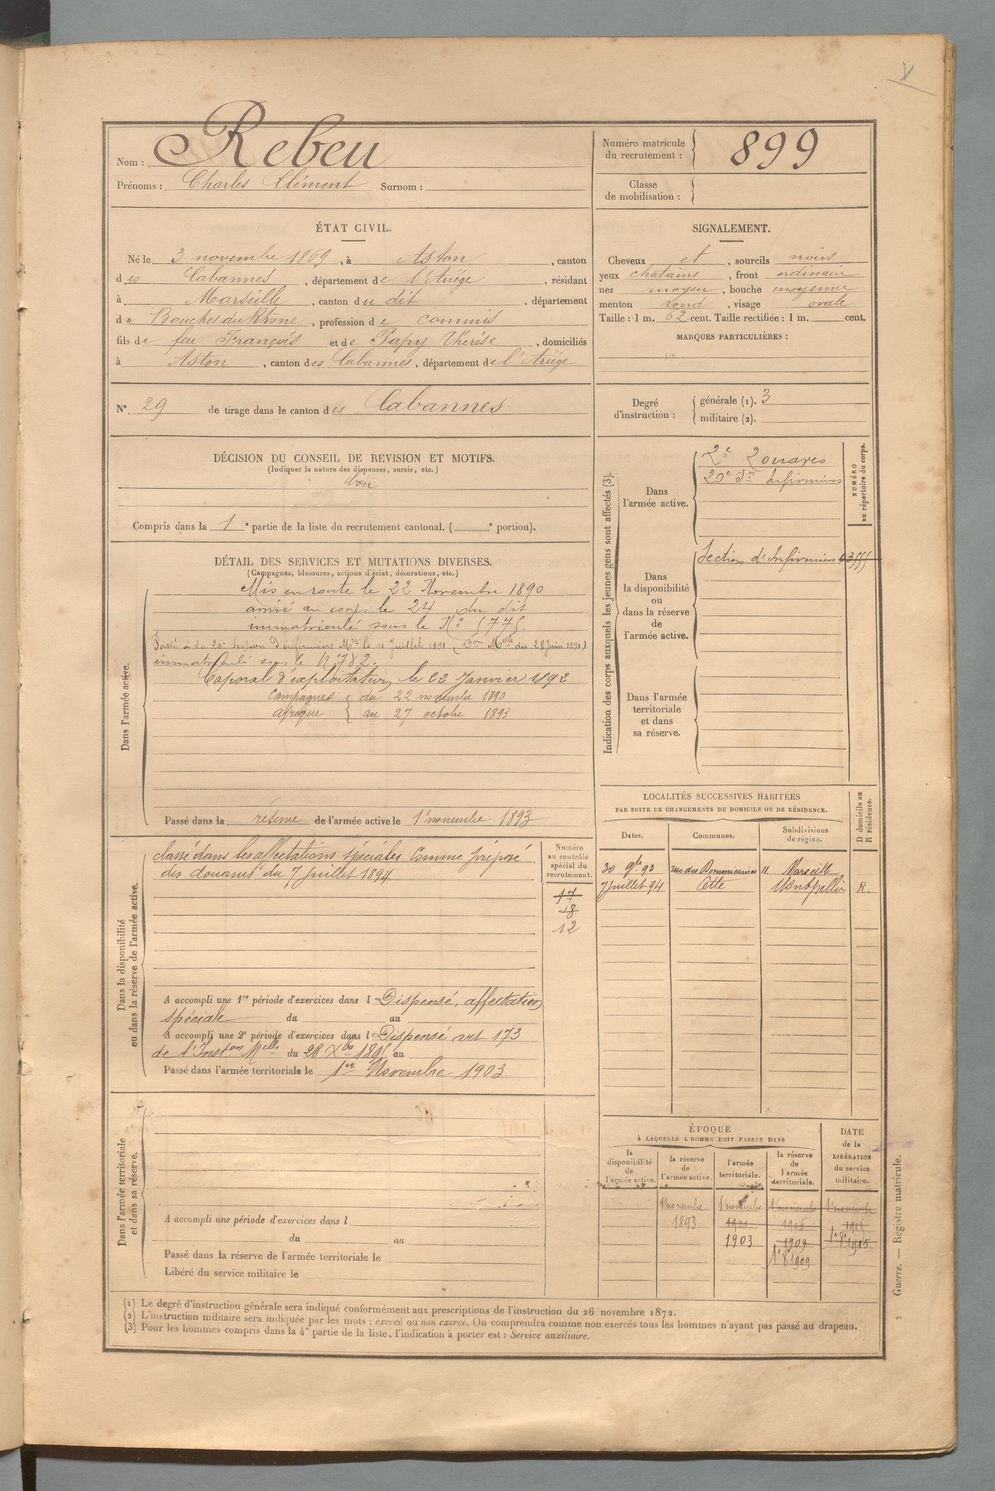 Nom : Rebeu
Prénoms : Charles Clément Surnom :
Numéro matricule du recrutement : 899
Classe de mobilisation :
ÉTAT CIVIL.
Né le 3 novembre 1869, à Aston, canton
des Cabannes, département de l'Ariège, résidant
à Marseille, canton du dit, département
d Bouches du Rhône, profession de commis
fils de feu François et de Papy Thérèse, domiciliés
à Aston, canton des Cabannes, département de l'Ariège
SIGNALEMENT.
Cheveux et, sourcils noirs
yeux chatains, front ordinaire
nez moyen, bouche moyenne
menton rond, visage ovale
Taille : 1 m. 62 cent. Taille rectifiée : 1 m. cent.
MARQUES PARTICULIÈRES :
N° 29 de tirage dans le canton des Cabannes
Degré d'instruction :
générale (1). 3
militaire (2).
DÉCISION DU CONSEIL DE REVISION ET MOTIFS.
(Indiquer la nature des dispenses, sursis, etc.)
bon
Compris dans la 1e partie de la liste du recrutement cantonal. ( e portion).
DÉTAIL DES SERVICES ET MUTATIONS DIVERSES.
(Campagnes, blessures, actions d'éclat, décorations, etc.)
Dans l'armée active.
Mis en route le 22 Novembre 1890
arrivé au corps le 24 du dit
immatriculé sous le N°
Passé à la 20e Section d'infirmiers Mres le 11 Juillet 1891 ( Melle du 28 Juin 1891)
immatriculé sous le N 782.
Caporal d'exploitation le 22 Janvier 1892
Campagnes du 22 novembre 1890
afrique au 27 octobre 1893
Passé dans la réserve de l'armée active le 1er novembre 1893
Indication des corps auxquels les jeunes gens sont affectés (3).
NUMÉRO au répertoire du corps.
Dans l'armée active.
2e Zouaves
20e Son Infirmiers
Dans la disponibilité ou dans la réserve de l'armée active.
Section d'Infirmiers
Dans l'armée territoriale et dans sa réserve.
LOCALITÉS SUCCESSIVES HABITÉES
PAR SUITE DE CHANGEMENTS DE DOMICILE OU DE RÉSIDENCE.
Dates. Communes. Subdivisions de région. D domicile ou R résidence.
30 9bre 93 rue des Dominicaines 11 Marseille
7 juillet 94 Cette Montpellier R.
Dans la disponibilité ou dans la réserve de l'armée active.
classé dans les affectations spéciales comme préposé
des douanes du 7 Juillet 1894
Numéro au contrôle spécial du recrutement.
17
18
12
A accompli une 1re période d'exercices dans l Dispensé, affectation
spéciale du au
A accompli une 2e période d'exercices dans l Dispensé art 173
de l'Inston Melle du 28 Xbre 1895 au
Passé dans l'armée territoriale le 1er Novembre 1903
Dans l'armée territoriale et dans sa réserve.
A accompli une période d'exercices dans l
du au
Passé dans la réserve de l'armée territoriale le
Libéré du service militaire le
ÉPOQUE
À LAQUELLE L'HOMME DOIT PASSER DANS
DATE de la LIBÉRATION du service militaire.
la disponibilité de l'armée active. la réserve de l'armée active. l'armée territoriale. la réserve de l'armée territoriale.
1er novembre 1er novembre 1er novembre 1er novembre
1893 1900 1906
1903 1909
Guerre. — Registre matricule.
(1) Le degré d'instruction générale sera indiqué conformément aux prescriptions de l'instruction du 26 novembre 1872.
(2) L'instruction militaire sera indiquée par les mots : exercé ou non exercé. On comprendra comme non exercés tous les hommes n'ayant pas passé au drapeau.
(3) Pour les hommes compris dans la 4e partie de la liste, l'indication à porter est : Service auxiliaire.